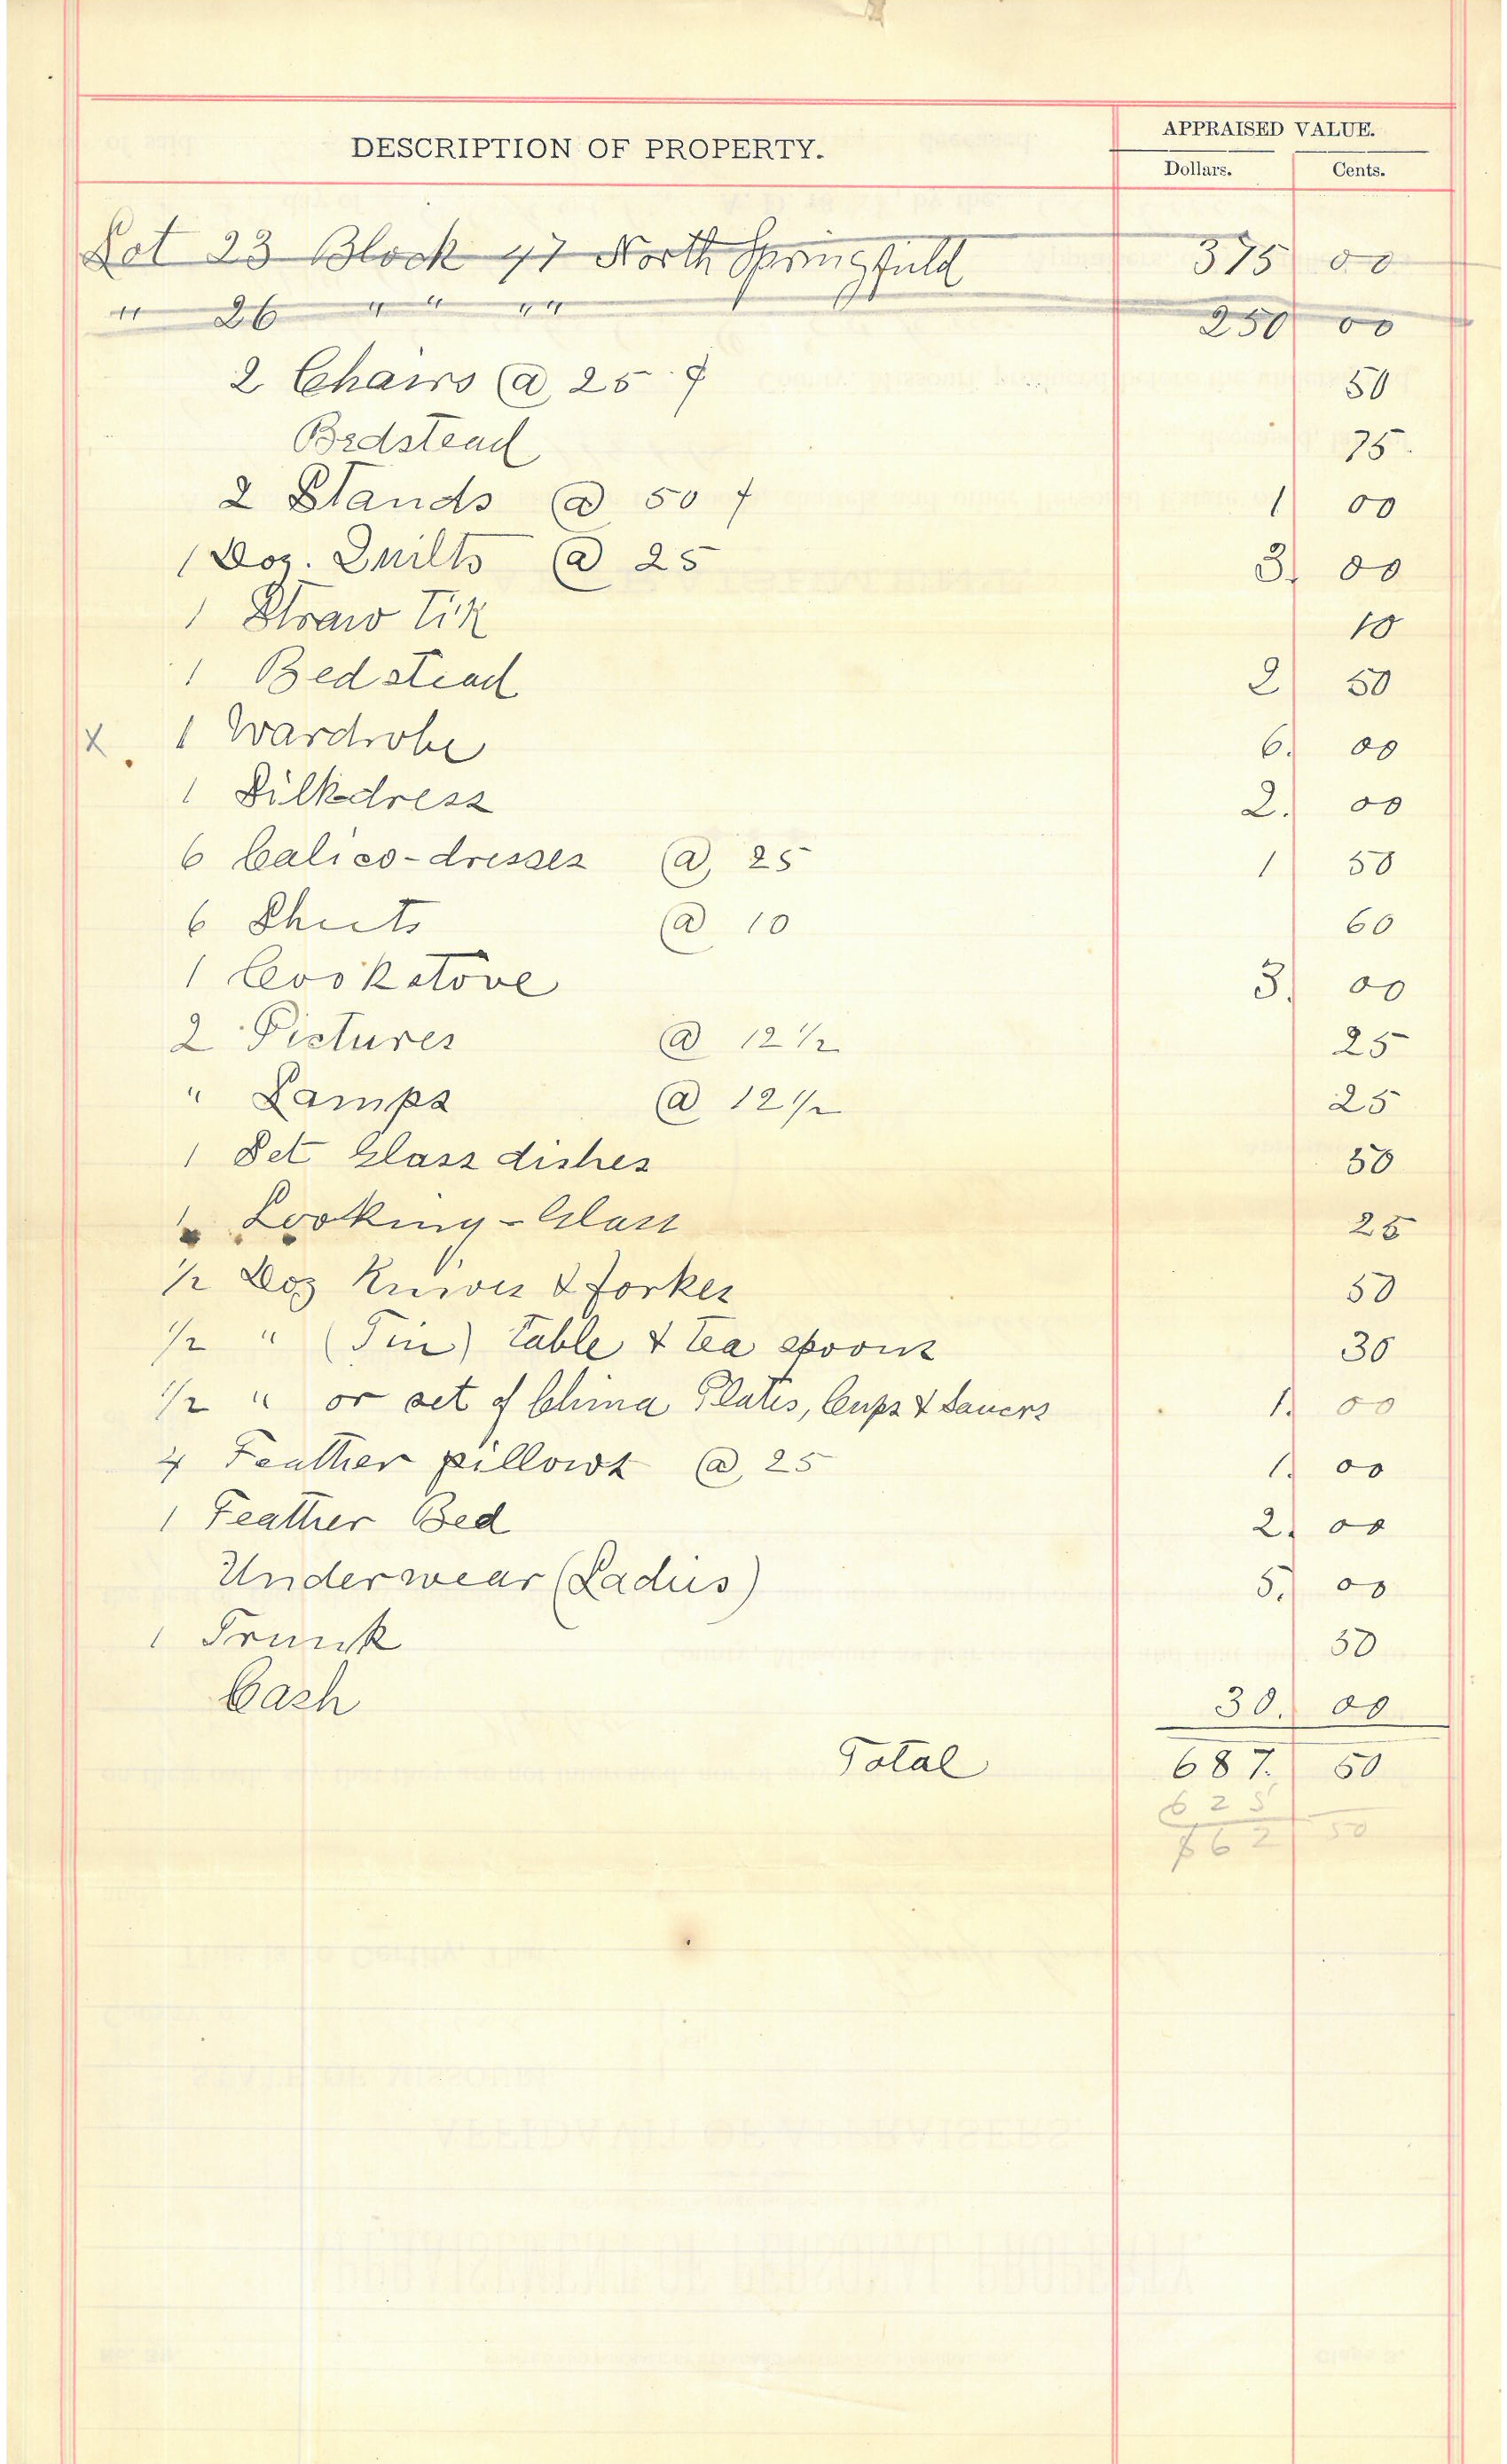 DESCRIPTION OF PROPERTY. APPRAISED VALUE.
Dollars. Cents.
Lot 23 Block 47 North Springfield 375 00
" 26 " " " " 250 00
2 Chairs @ 25 ¢ 50
Bedstead 75.
2 Stands @ 50 ¢ 1 00
1 Doz. Quilts @ 25 3. 00
1 Straw Tik 10
1 Bedstead 2 50
X. 1 Wardrobe 6. 00
1 Silkdress 2. 00
6 Calico-dresses @ 25 1 50
6 Sheets @ 10 60
1 Cookstove 3. 00
2 Pictures @ 12 1/2 25
" Lamps @ 12 1/2 25
1 Set Glass dishes 50
1 Looking-Glass 25
1/2 Doz Knives & forkes 50
1/2 " (Tin) table & tea spoons 30
1/2 " or set of China Plates, Cups & Saucers 1. 00
4 Feather pillows @ 25 1. 00
1 Feather Bed 2. 00
Underwear (Ladies) 5. 00
1 Trunk 50
Cash 30. 00
Total 687. 50
625
$62 50